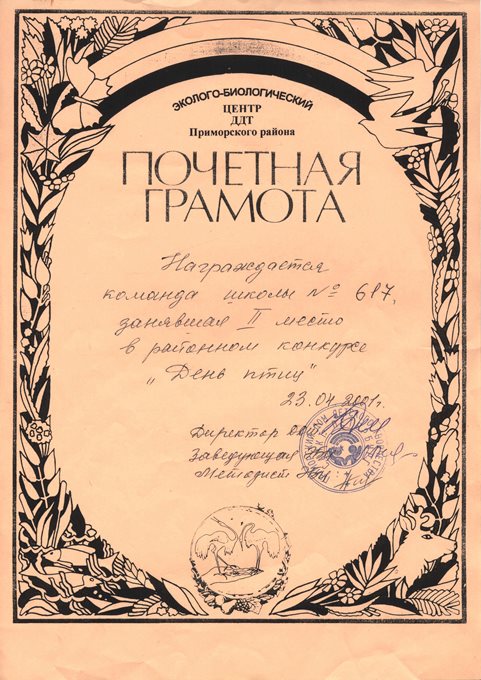 ЭКОЛОГО-БИОЛОГИЧЕСКИЙ
ЦЕНТР
ДДТ
Приморского района
ПОЧЕТНАЯ
ГРАМОТА
Награждается
команда школы № 617,
занявшая II место
в районном конкурсе
„День птиц"
23.04.2001г.
Директор
Заведующая
Методист